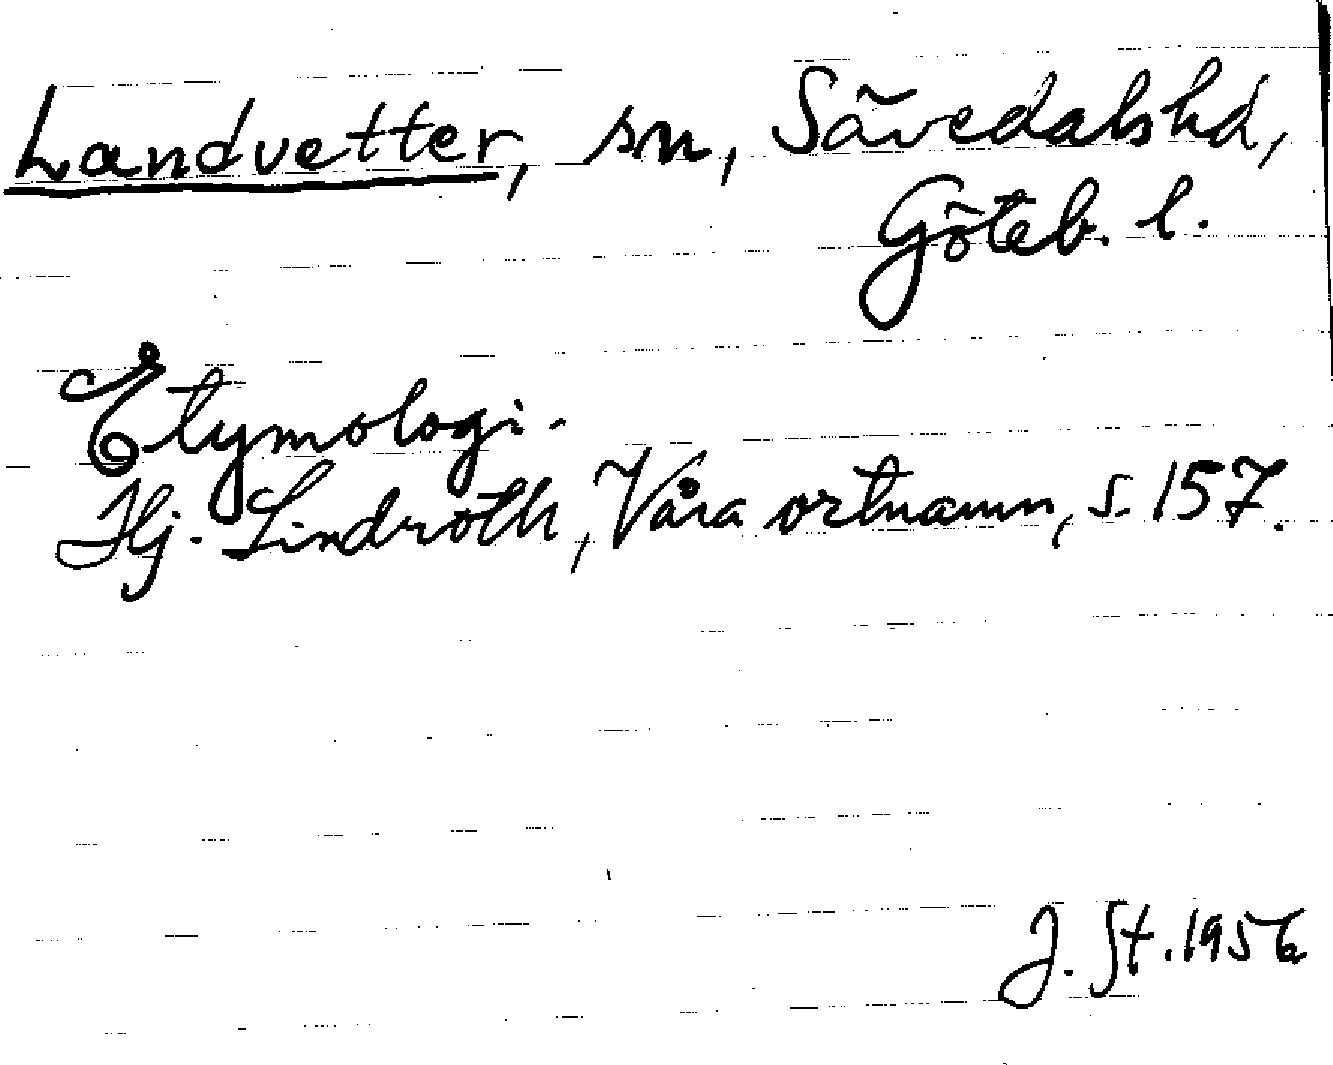 Landvetter, sn, Sävedals hd,
Göteb. l.
Etymologi.
Hj. Lindroth, Våra ortnamn, s. 157.
J. St. 1956